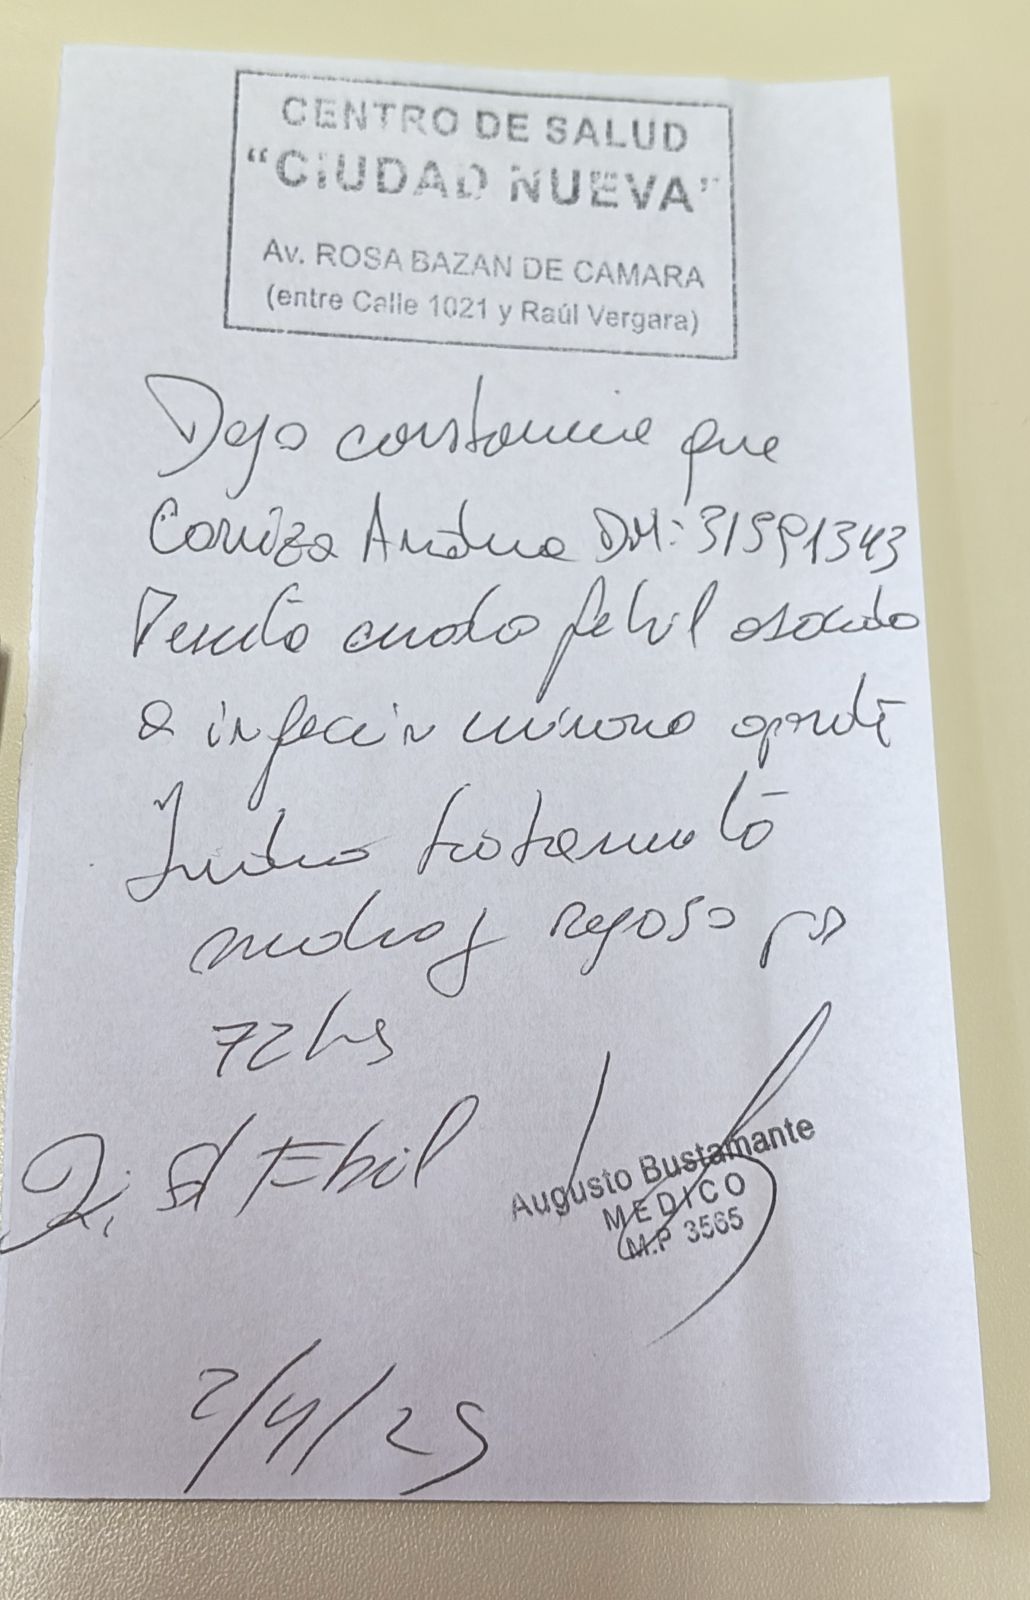 CENTRO DE SALUD
"CIUDAD NUEVA"
Av. ROSA BAZAN DE CAMARA
(entre Calle 1021 y Raúl Vergara)
Dejo constancia que
Andrea DNI: 31591343
Presenta cuadro febril asociado
a infección
Indico tratamiento
medico y reposo por
72 hs
D: Sd Febril
Augusto Bustamante
MEDICO
M.P 3565
2/4/25